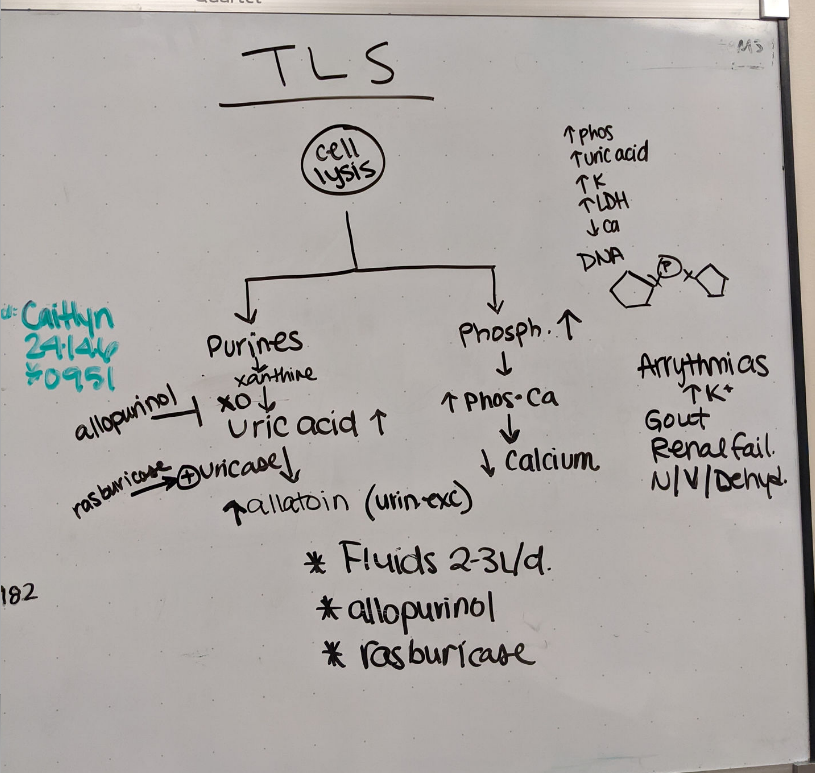 Quartet
MS
TLS
cell
lysis
↑phos
↑uric acid
↑K
↑LDH
↓ca
DNA
P
Caitlyn
24146
*0951
Purines
xanthine
XO↓
Uric acid ↑
allopurinol
rasburicase
+
uricase↓
↑allatoin (urin·exc)
Phosph. ↑
↓
↑Phos·Ca
↓
↓ Calcium
Arrythmias
↑K+
Gout
Renal fail.
N/V/Dehyd.
182
* Fluids 2-3L/d.
* allopurinol
* rasburicase